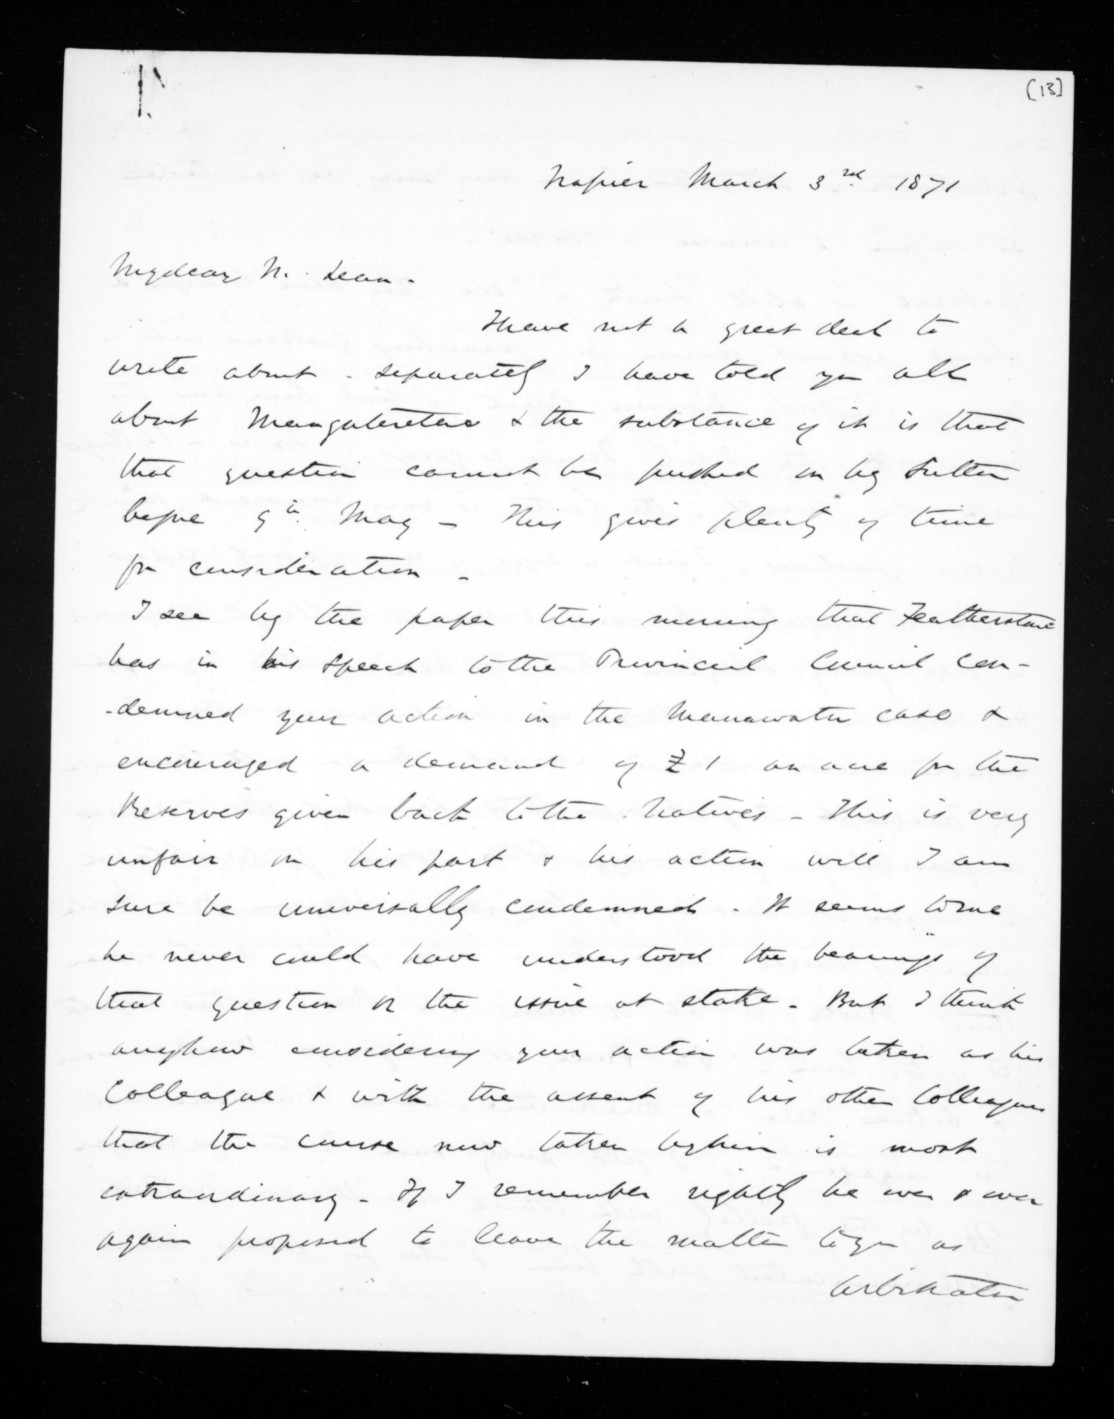 [13]
Napier March 3rd 1871
My dear McLean.
I have not a great deal to
write about - separately I have told you all
about Mangateretere & the substance of it is that
that question cannot be pushed on by Sutton
before 9th May - This gives plenty of time
for consideration -
I see by the paper this morning that Featherstone
has in his speech to the Provincial Council con-
-demned your action in the Manawatu case &
encouraged a demand of £1 an acre for the
Reserves given back to the Natives - This is very
unfair on his part & his action will I am
sure be universally condemned - It seems to me
he never could have understood the bearings of
that question or the issue at stake - But I think
anyhow considering your action was taken as his
Colleague & with the assent of his other Colleagues
that the course now taken by him is most
extraordinary - If I remember rightly he over & over
again proposed to leave the matter to you as
Arbitrator